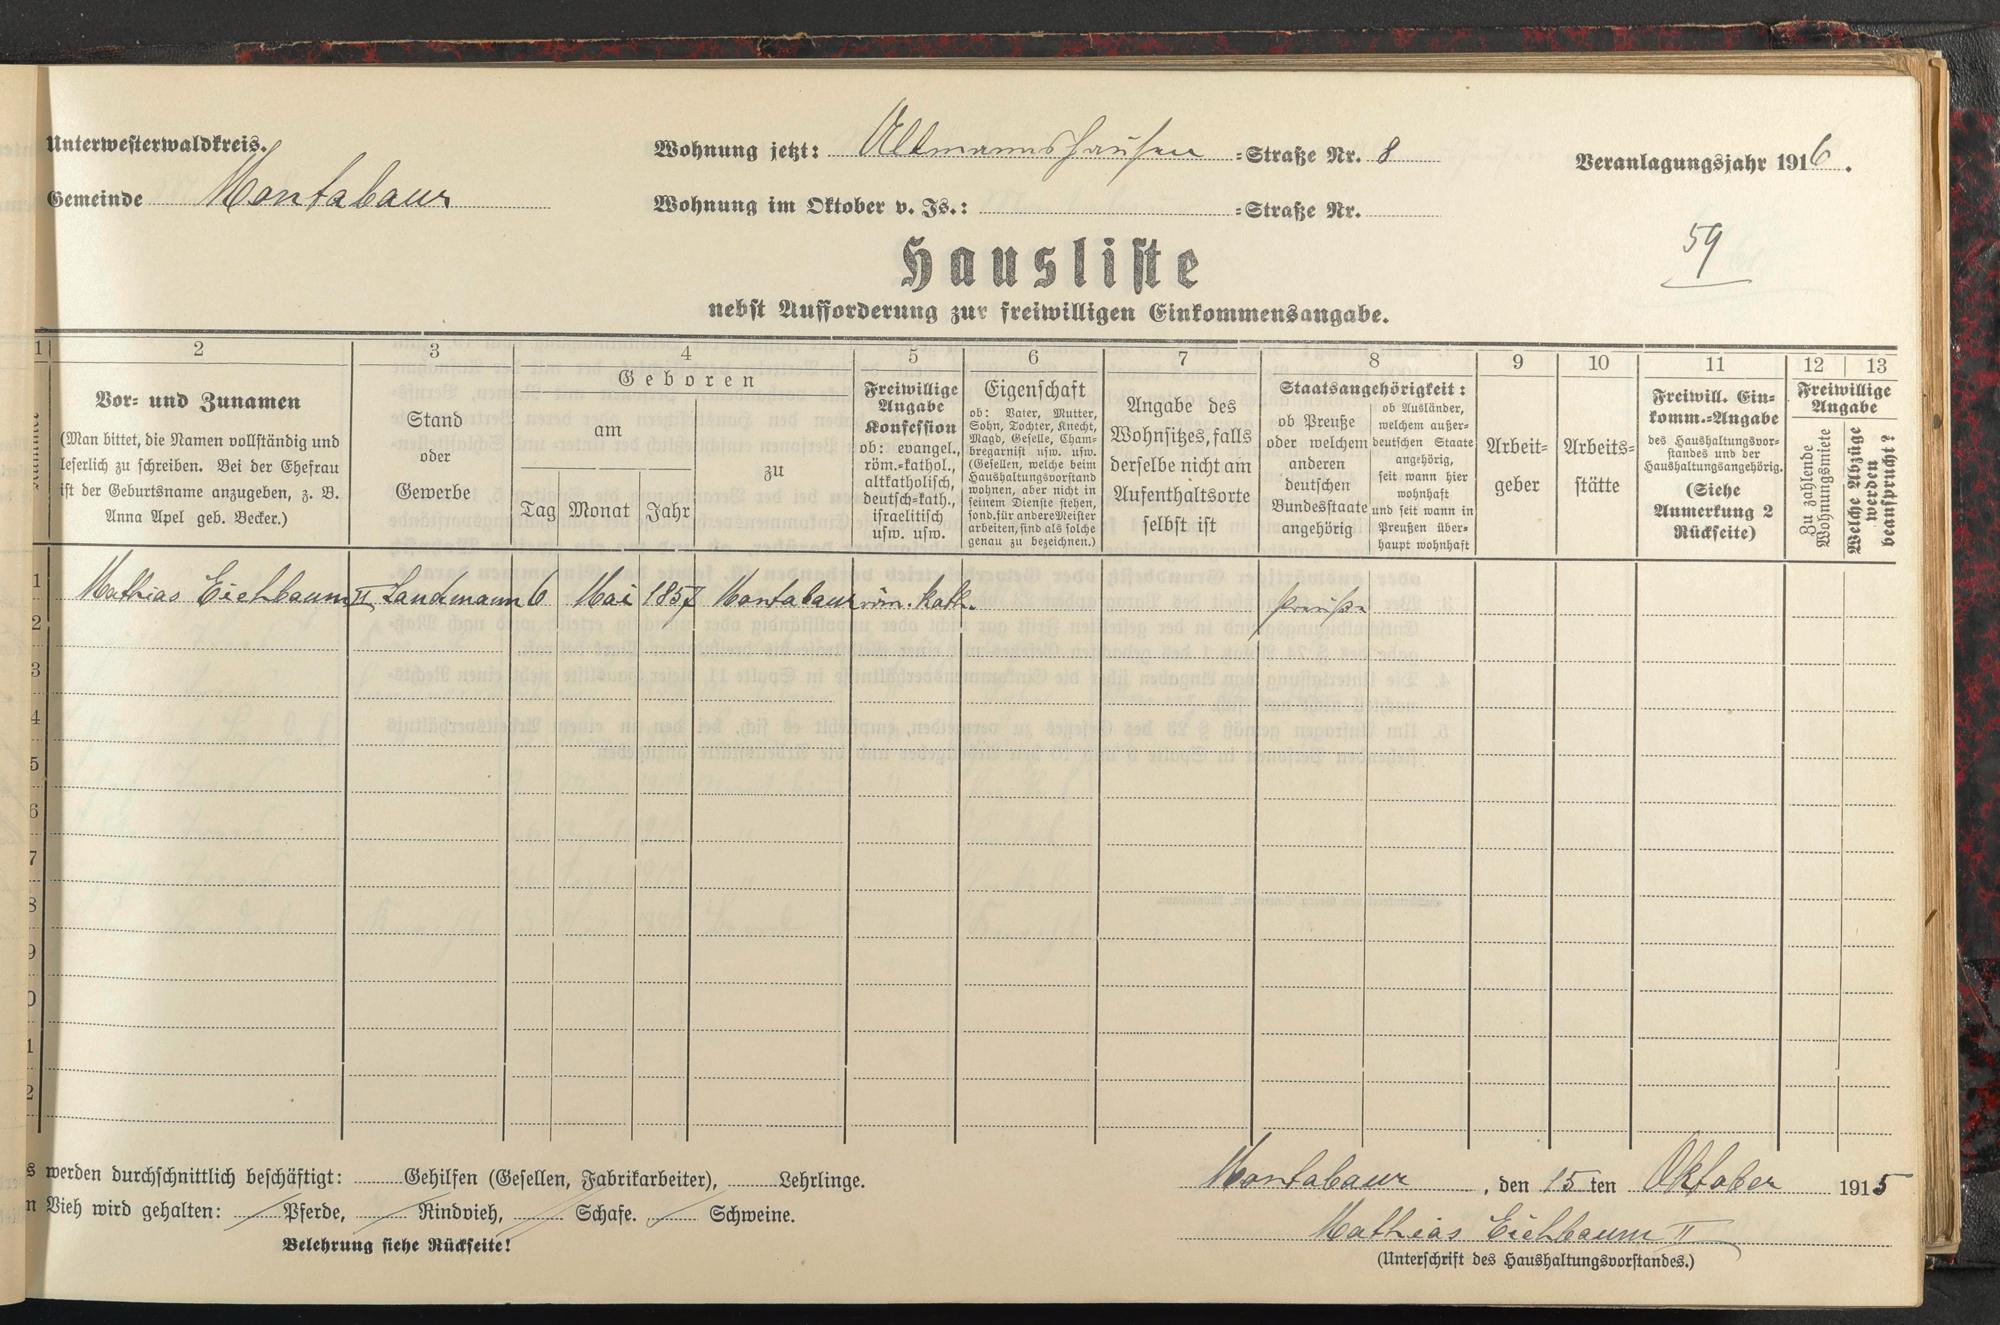 Unterwesterwaldkreis.
Gemeinde Montabaur
Wohnung jetzt: Allmannshausen =Straße Nr. 8
Wohnung im Oktober v. Js.: =Straße Nr.
Veranlagungsjahr 1916.
59
Hausliste
nebst Aufforderung zur freiwilligen Einkommensangabe.
1 2 3 4 5 6 7 8 9 10 11 12 13
Nummer
Vor- und Zunamen
(Man bittet, die Namen vollständig und
leserlich zu schreiben. Bei der Ehefrau
ist der Geburtsname anzugeben, z. B.
Anna Apel geb. Becker.)
Stand
oder
Gewerbe
Geboren
am
Tag Monat Jahr
zu
Freiwillige
Angabe
Konfession
ob: evangel.,
röm.-kathol.,
altkatholisch,
deutsch-kath.,
israelitisch
usw. usw.
Eigenschaft
ob: Vater, Mutter,
Sohn, Tochter, Knecht,
Magd, Geselle, Cham-
bregarnist usw. usw.
(Gesellen, welche beim
Haushaltungsvorstand
wohnen, aber nicht in
seinem Dienste stehen,
sond. für andere Meister
arbeiten, sind als solche
genau zu bezeichnen.)
Angabe des
Wohnsitzes, falls
derselbe nicht am
Aufenthaltsorte
selbst ist
Staatsangehörigkeit:
ob Preuße
oder welchem
anderen
deutschen
Bundesstaate
angehörig
ob Ausländer,
welchem außer-
deutschen Staate
angehörig,
seit wann hier
wohnhaft
und seit wann in
Preußen über-
haupt wohnhaft
Arbeit-
geber
Arbeits-
stätte
Freiwill. Ein-
komm.-Angabe
des Haushaltungsvor-
standes und der
Haushaltungsangehörig.
(Siehe
Anmerkung 2
Rückseite)
Freiwillige
Angabe
Zu zahlende
Wohnungsmiete
Welche Abzüge
werden
beansprucht?
1 Mathias Eichbaum II Landmann 6 Mai 1857 Montabaur röm. kath. Preuße
2
3
4
5
6
7
8
9
0
1
2
s werden durchschnittlich beschäftigt: Gehilfen (Gesellen, Fabrikarbeiter), Lehrlinge.
n Vieh wird gehalten: Pferde, Rindvieh, Schafe. Schweine.
Belehrung siehe Rückseite!
Montabaur, den 15 ten Oktober 1915
Mathias Eichbaum II
(Unterschrift des Haushaltungsvorstandes.)